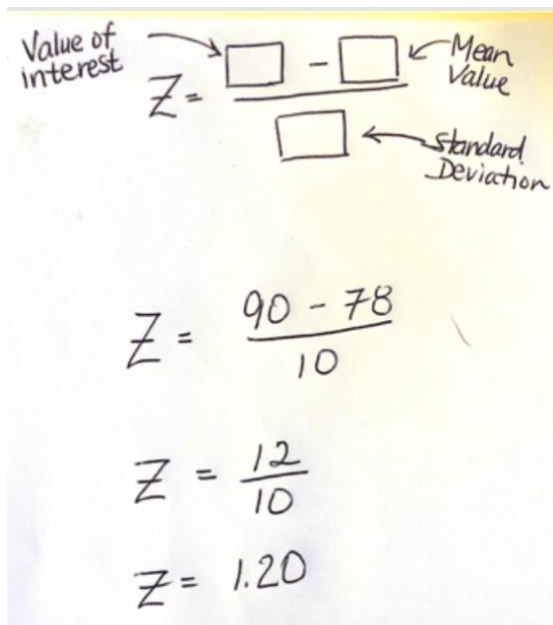 Value of
interest
Z = □ - □
□
Mean
Value
Standard
Deviation
Z = 90 - 78
10
Z = 12
10
Z = 1.20